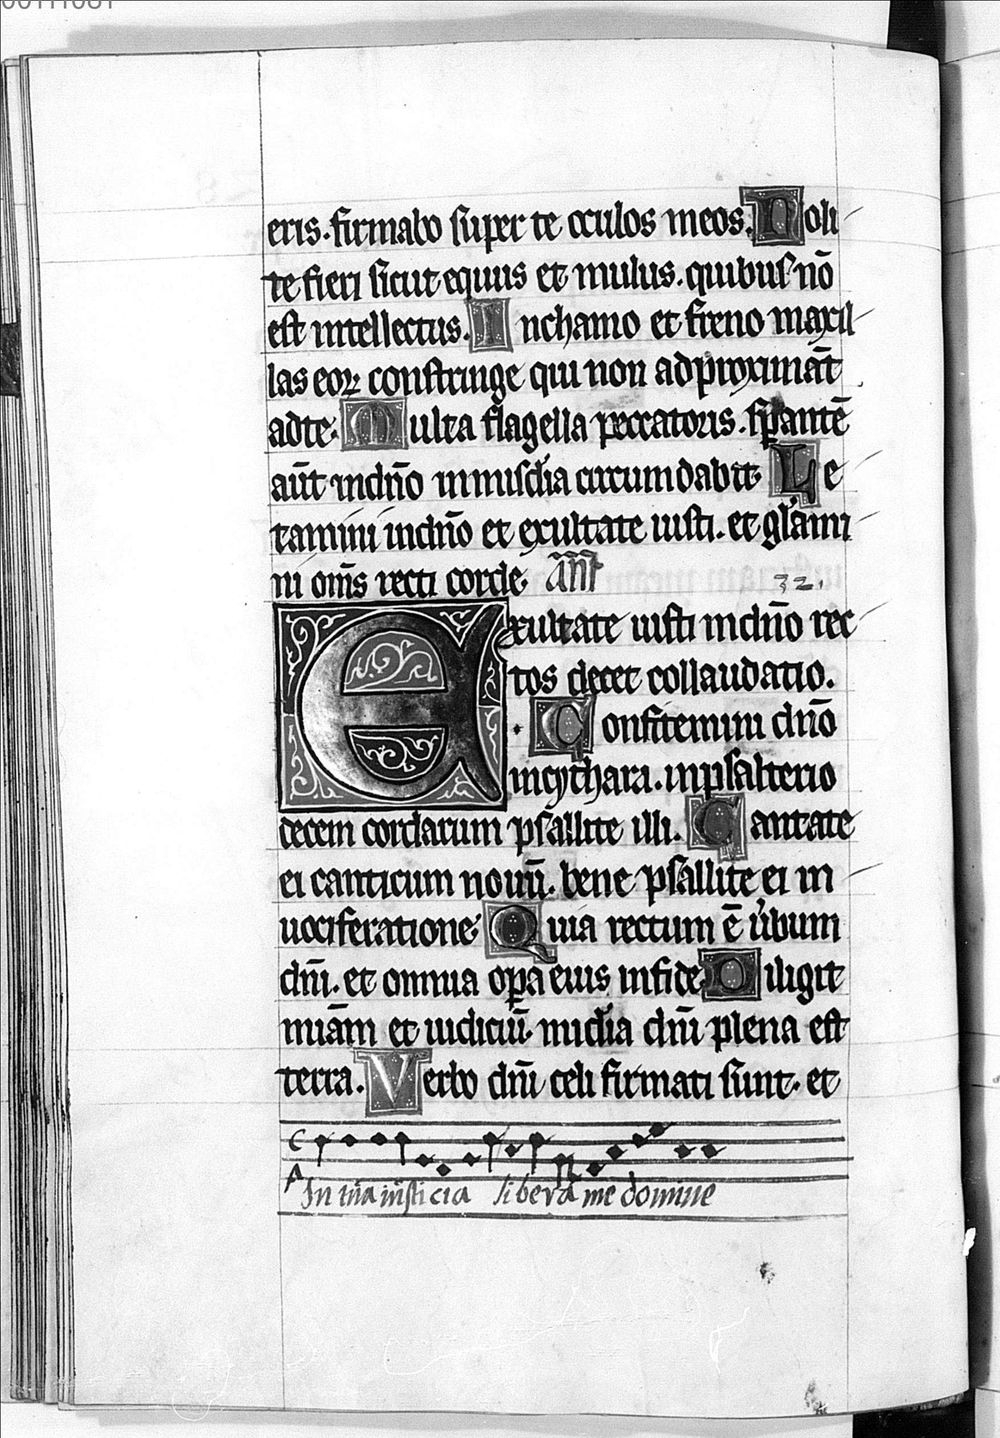 00111081
eris. firmabo super te oculos meos. Noli
te fieri sicut equus et mulus. quibus nō
est intellectus. In chamo et freno maxil
las eoꝝ constringe qui non adproximāt
adte. Multa flagella peccatoris. sꝑantē
aūt indn̄o in mis̄c̄dia circumdabit. Le
tamini indn̄o et exultate iusti. et gl̄ami
ni om̄s recti corde. Ant̄
32.
Exultate iusti indn̄o rec
tos decet collaudatio.
Confitemini dn̄o
incythara. inpsalterio
decem cordarum psallite illi. Cantate
ei canticum nouū. bene psallite ei in
uociferatione. Quia rectum ē u̾bum
dn̄i. et omnia oꝑa eius infide. Diligit
miām et iudiciū. mic̄dia dn̄i plena est
terra. Verbo dn̄i celi firmati sunt. et
In tua iusticia libera me domine